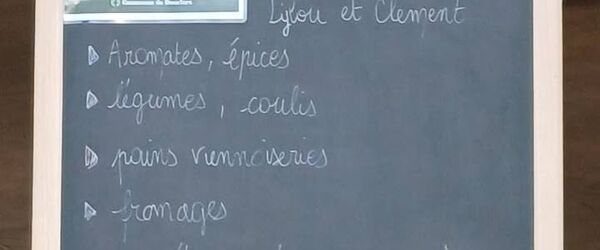 Lylou et Clement
Aromates, épices
légumes, coulis
pains viennoiseries
fromages